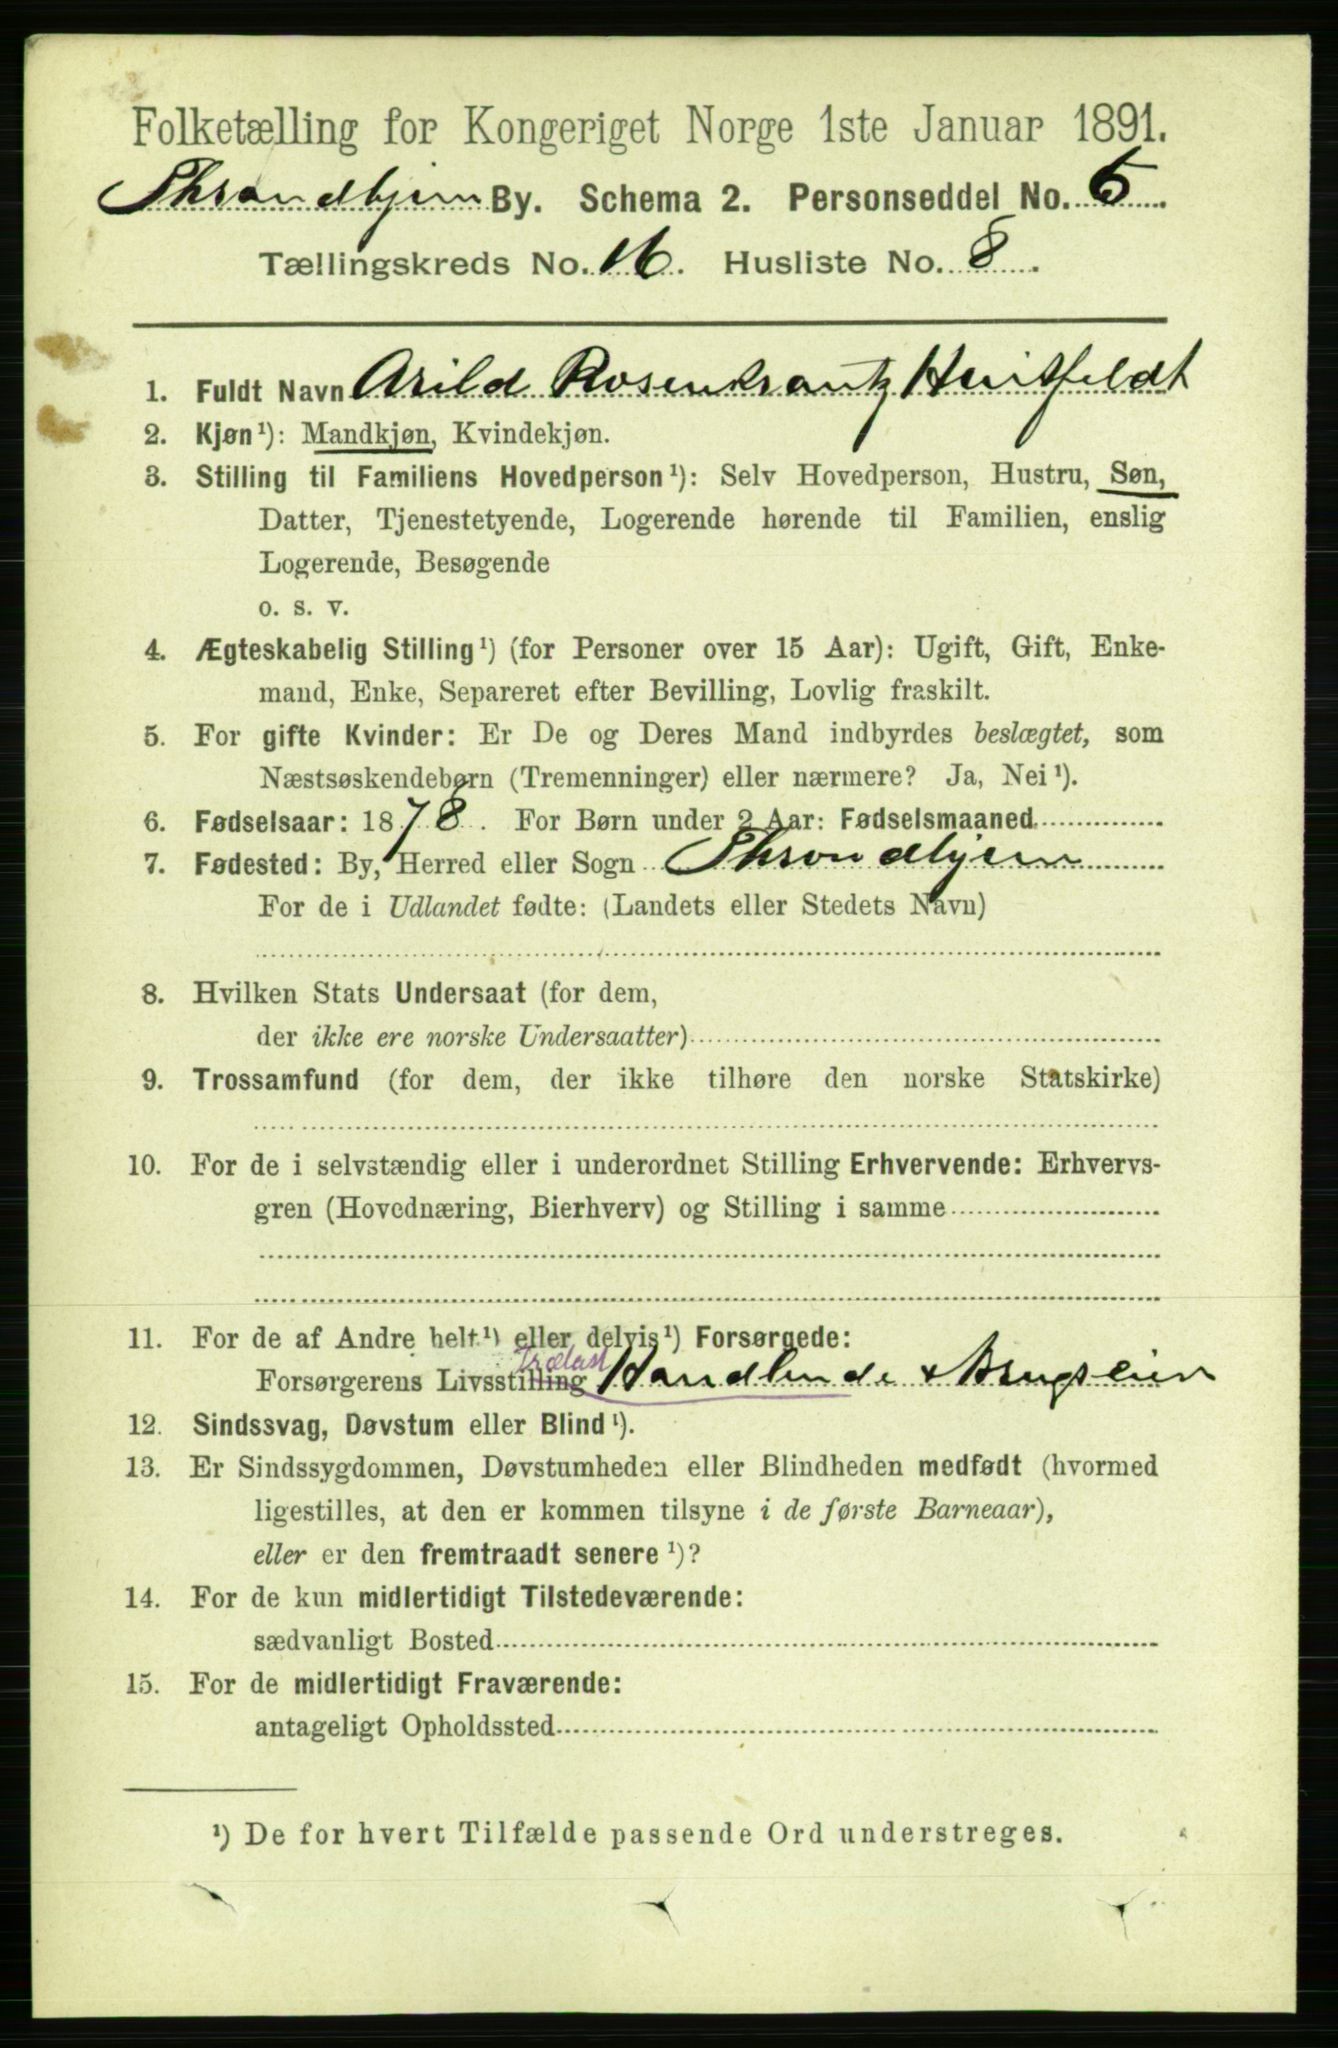 Folketælling for Kongeriget Norge 1ste Januar 1891.
Throndhjem By. Schema 2. Personseddel No. 6.
Tællingskreds No. 16. Husliste No. 8.
1. Fuldt Navn Arild Rosenkrantz Huitfeldt
2. Kjøn¹): Mandkjøn, Kvindekjøn.
3. Stilling til Familiens Hovedperson¹): Selv Hovedperson, Hustru, Søn,
Datter, Tjenestetyende, Logerende hørende til Familien, enslig
Logerende, Besøgende
o. s. v.
4. Ægteskabelig Stilling¹) (for Personer over 15 Aar): Ugift, Gift, Enke-
mand, Enke, Separeret efter Bevilling, Lovlig fraskilt.
5. For gifte Kvinder: Er De og Deres Mand indbyrdes beslægtet, som
Næstsøskendebørn (Tremenninger) eller nærmere? Ja, Nei¹).
6. Fødselsaar: 1878. For Børn under 2 Aar: Fødselsmaaned
7. Fødested: By, Herred eller Sogn Throndhjem
For de i Udlandet fødte: (Landets eller Stedets Navn)
8. Hvilken Stats Undersaat (for dem,
der ikke ere norske Undersaatter)
9. Trossamfund (for dem, der ikke tilhøre den norske Statskirke)
10. For de i selvstændig eller i underordnet Stilling Erhvervende: Erhvervs-
gren (Hovednæring, Bierhverv) og Stilling i samme
11. For de af Andre helt¹) eller delvis¹) Forsørgede:
Trælast
Forsørgerens Livsstilling Handlende & Brugseier
12. Sindssvag, Døvstum eller Blind¹).
13. Er Sindssygdommen, Døvstumheden eller Blindheden medfødt (hvormed
ligestilles, at den er kommen tilsyne i de første Barneaar),
eller er den fremtraadt senere¹)?
14. For de kun midlertidigt Tilstedeværende:
sædvanligt Bosted
15. For de midlertidigt Fraværende:
antageligt Opholdssted
¹) De for hvert Tilfælde passende Ord understreges.